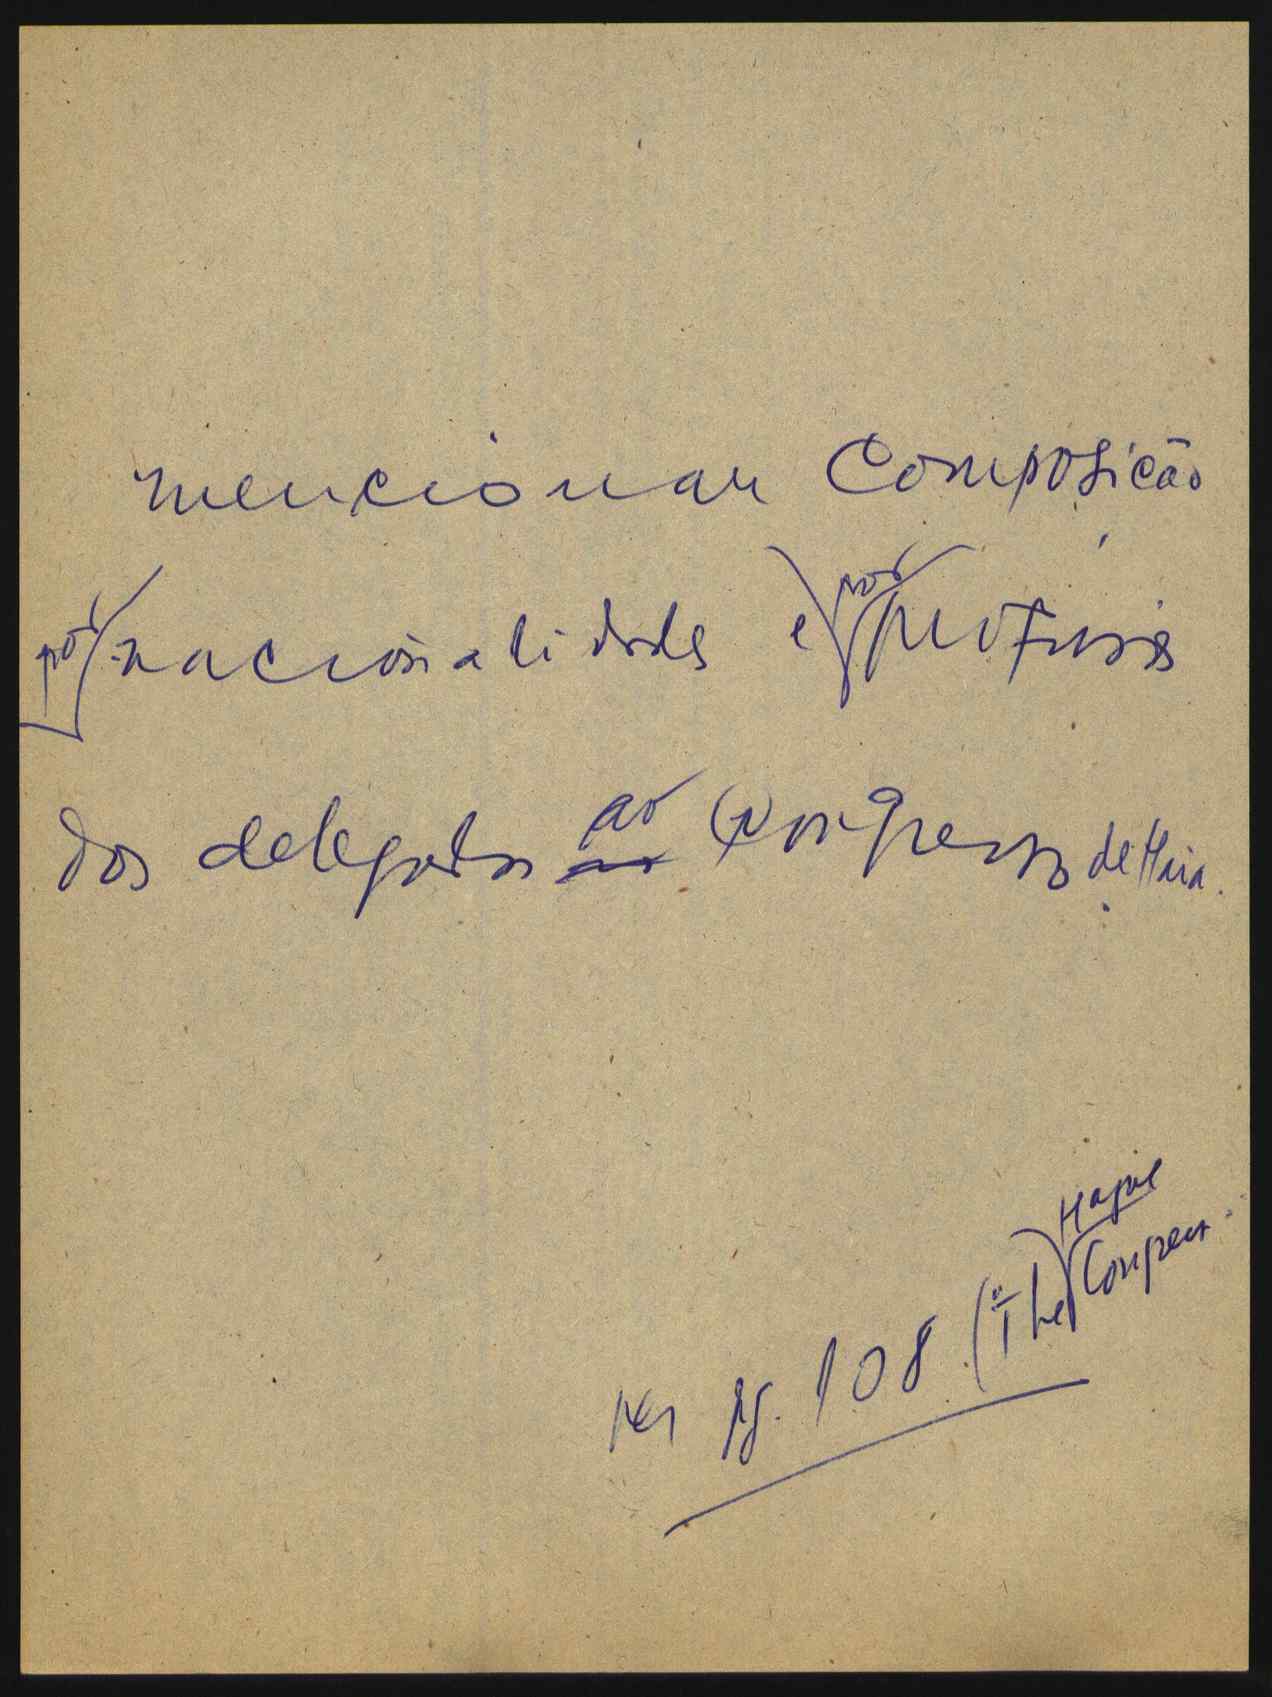 mencionar Composição
por nacionalidades e por
dos delegados ao Congresso de Haia.
Ver pg. 108 (The Hague Congress